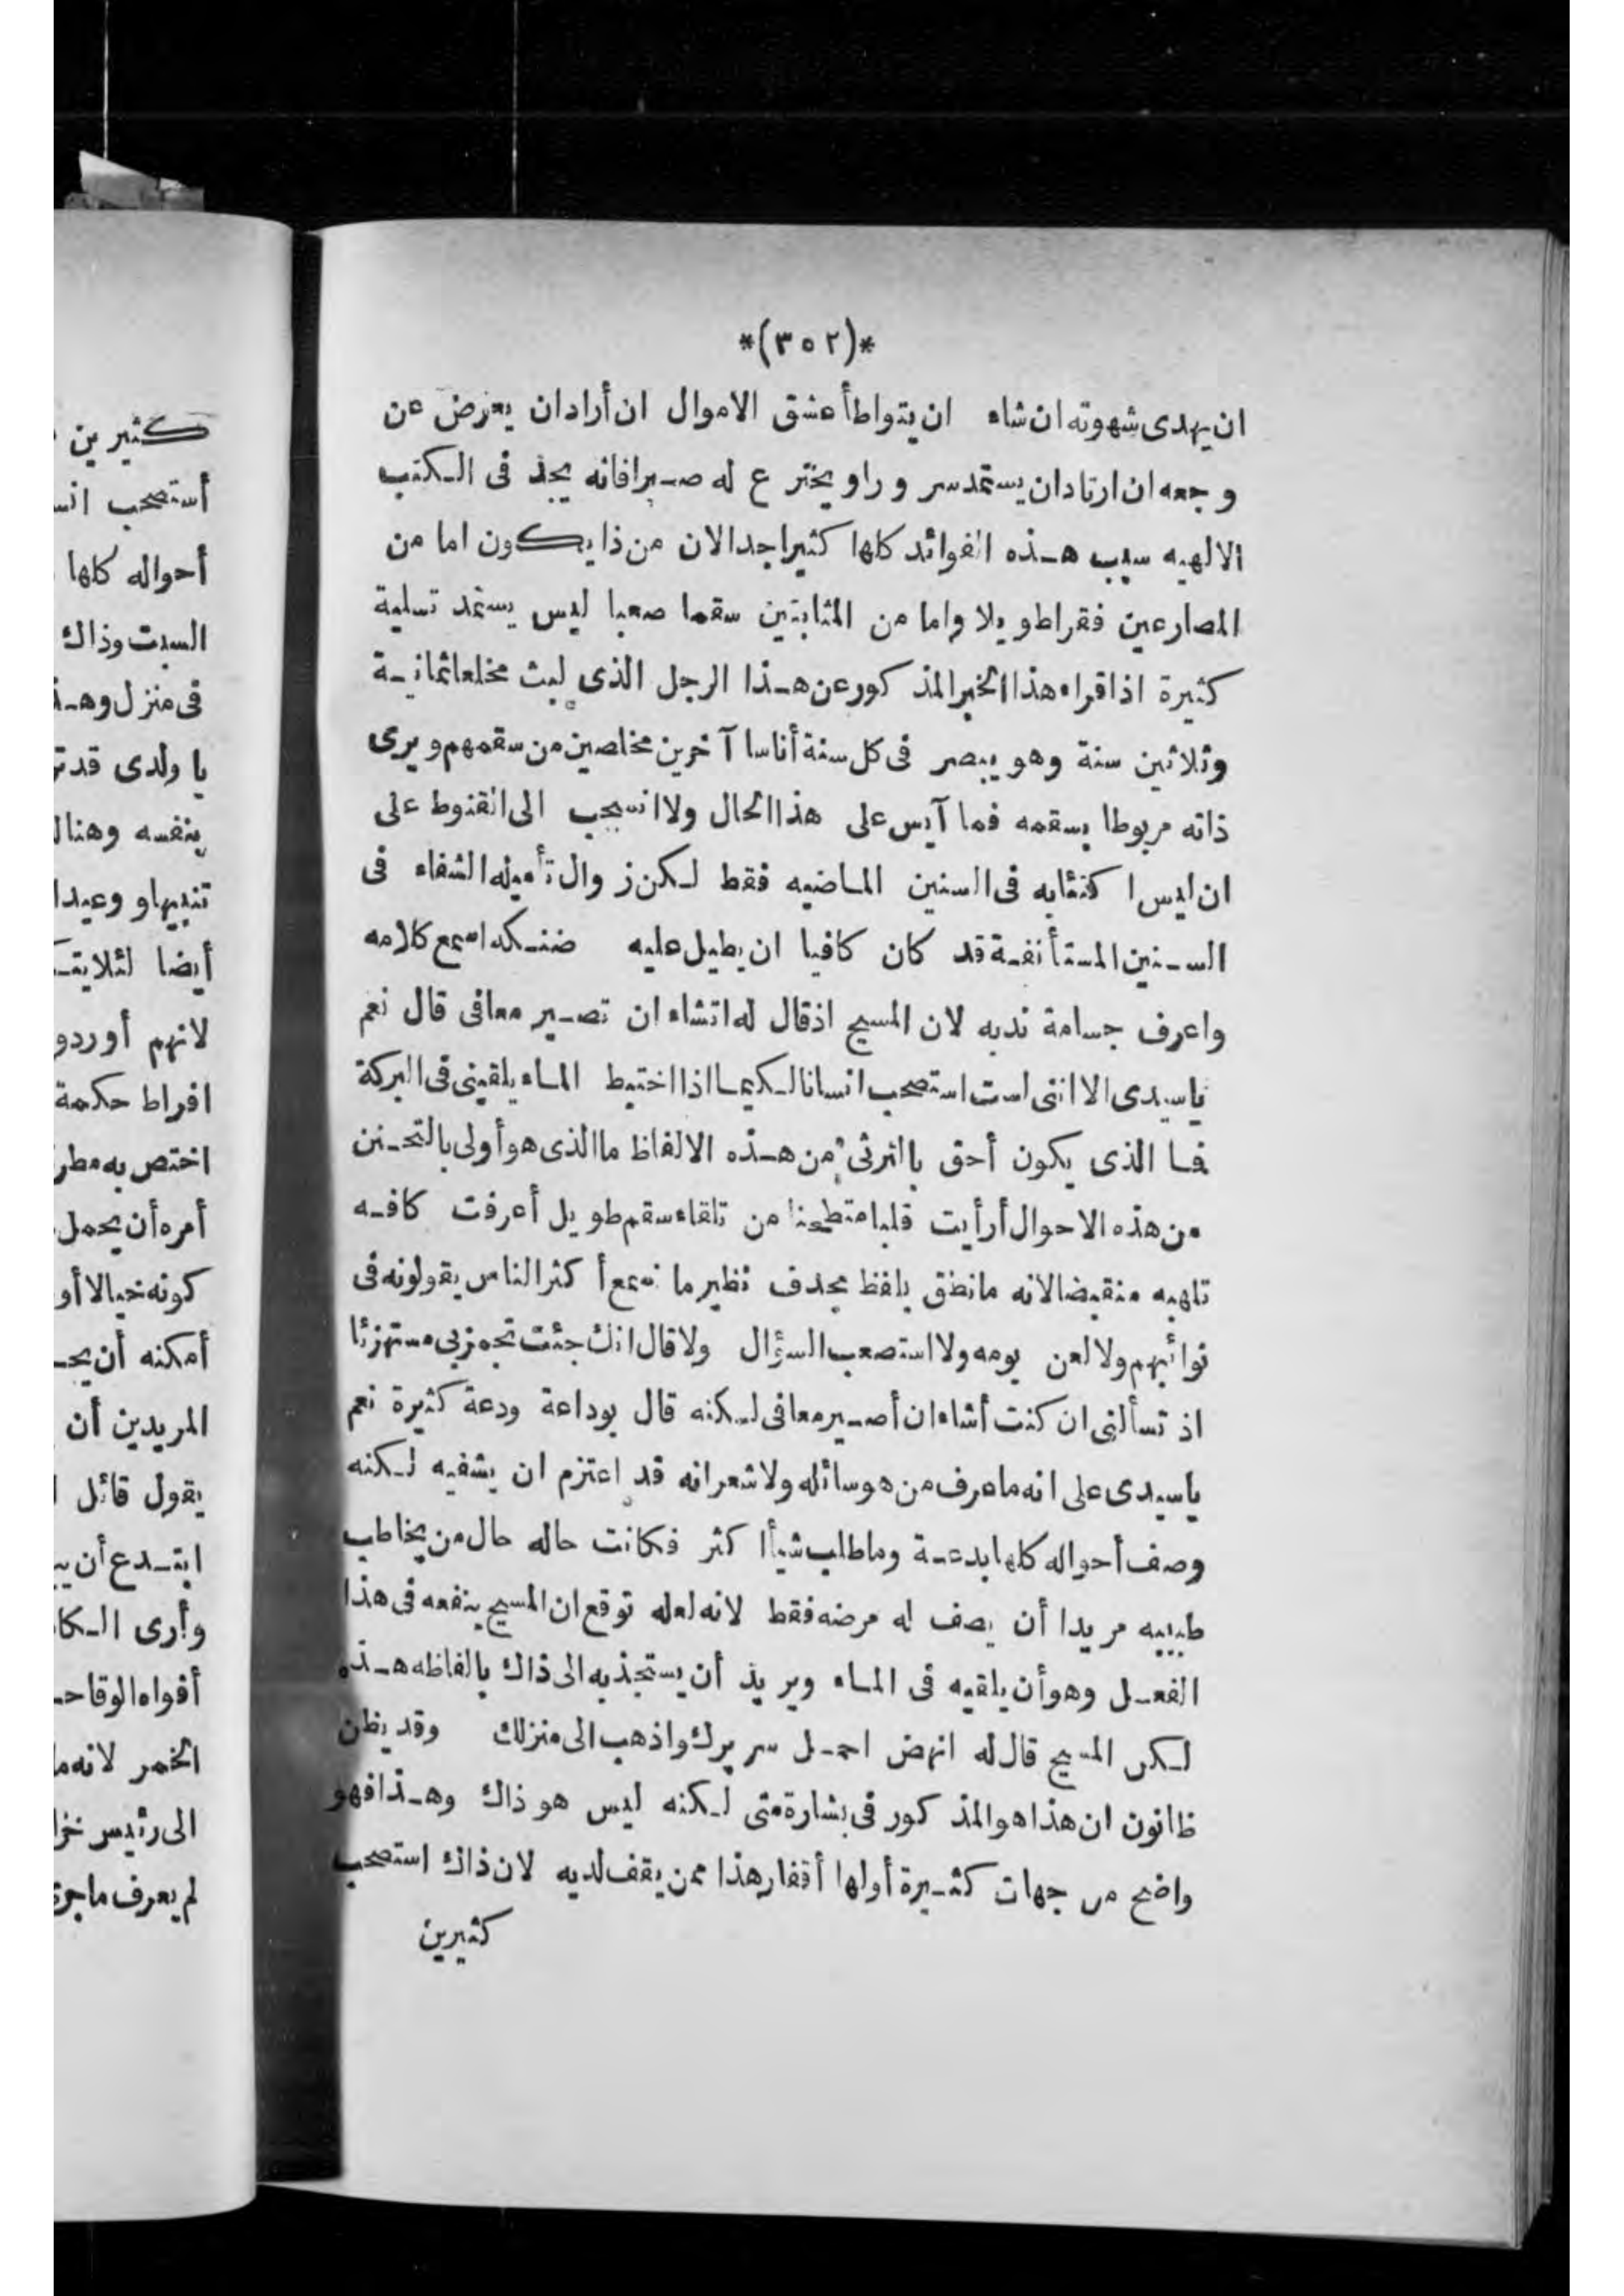 *(٣٥٢)*
ان يهدى شهوته ان شاء ان يتواطأ عشق الاموال ان أراد ان يعرض عن
وجعه ان ارتاد ان يستمد سر ورا ويخترع له صبرا فانه يجد فى الكتب
الالهيه سبب هذه الفوائد كلها كثيرا جدا لان من ذا يكون اما من
المصارعين فقرا طويلا واما من المثابتين سقما صعبا ليس يستمد تسلية
كثيرة اذا قراء هذا الخبر المذكور عن هذا الرجل الذى لبث مخلعا ثمانية
وثلاثين سنة وهو يبصر فى كل سنة أناسا آخرين مخلصين من سقمهم ويرى
ذاته مربوطا بسقمه فما آيس على هذا الحال ولا انسحب الى القنوط على
ان ليس اكتئابه فى السنين الماضيه فقط لكن زوال تأميله الشفاء فى
السنين المستأنفة قد كان كافيا ان يطيل عليه ضنكه اسمع كلامه
واعرف جسامة ندبه لان المسيح اذ قال له اتشاء ان تصير معافى قال نعم
ياسيدى الا اننى لست استصحب انسانا لكيما اذا اختبط الماء يلقينى فى البركة
فما الذى يكون أحق بالترثى من هذه الالفاظ ما الذى هو أولى بالتحنن
من هذه الاحوال أرأيت قلبا متطحنا من تلقاء سقم طويل أعرفت كافه
تلهبه منقبضا لانه ما نطق بلفظ مجدف نظير ما نسمع أكثر الناس يقولونه فى
نوائبهم ولا لعن يومه ولا استصعب السؤال ولا قال انك جئت تجمز بى مستهزئا
اذ تسألنى ان كنت أشاء ان أصير معافى لكنه قال بوداعة ودعة كثيرة نعم
ياسيدى على انه ما عرف من هو سائله ولا شعر انه قد اعتزم ان يشفيه لكنه
وصف أحواله كلها بدعة وما طلب شيأ أكثر فكانت حاله حال من يخاطب
طبيبه مريدا أن يصف له مرضه فقط لانه لعله توقع ان المسيح ينفعه فى هذا
الفعل وهو أن يلقيه فى الماء ويريد أن يستجذبه الى ذاك بالفاظه هذه
لكن المسيح قال له انهض احمل سريرك واذهب الى منزلك وقد يظن
ظانون ان هذا هو المذكور فى بشارة متى لكنه ليس هو ذاك وهذا فهو
واضح من جهات كثيرة أولها أقفار هذا ممن يقف لديه لان ذاك استصحب
كثيرين
كثيرين
أستصحب
أحواله كلها
السبت وذاك
فى منزل
يا ولدى
بنفسه
تنبيها وعيدا
أيضا
لانهم أوردو
افراط حكمة
اختص به
أمره أن يحمل
كونه خيالا أو
أمكنه أن
المريدين أن
يقول قائل
ابتدع أن
وأرى
أفواه
الخمر لانه
الى رئيس
لم يعرف